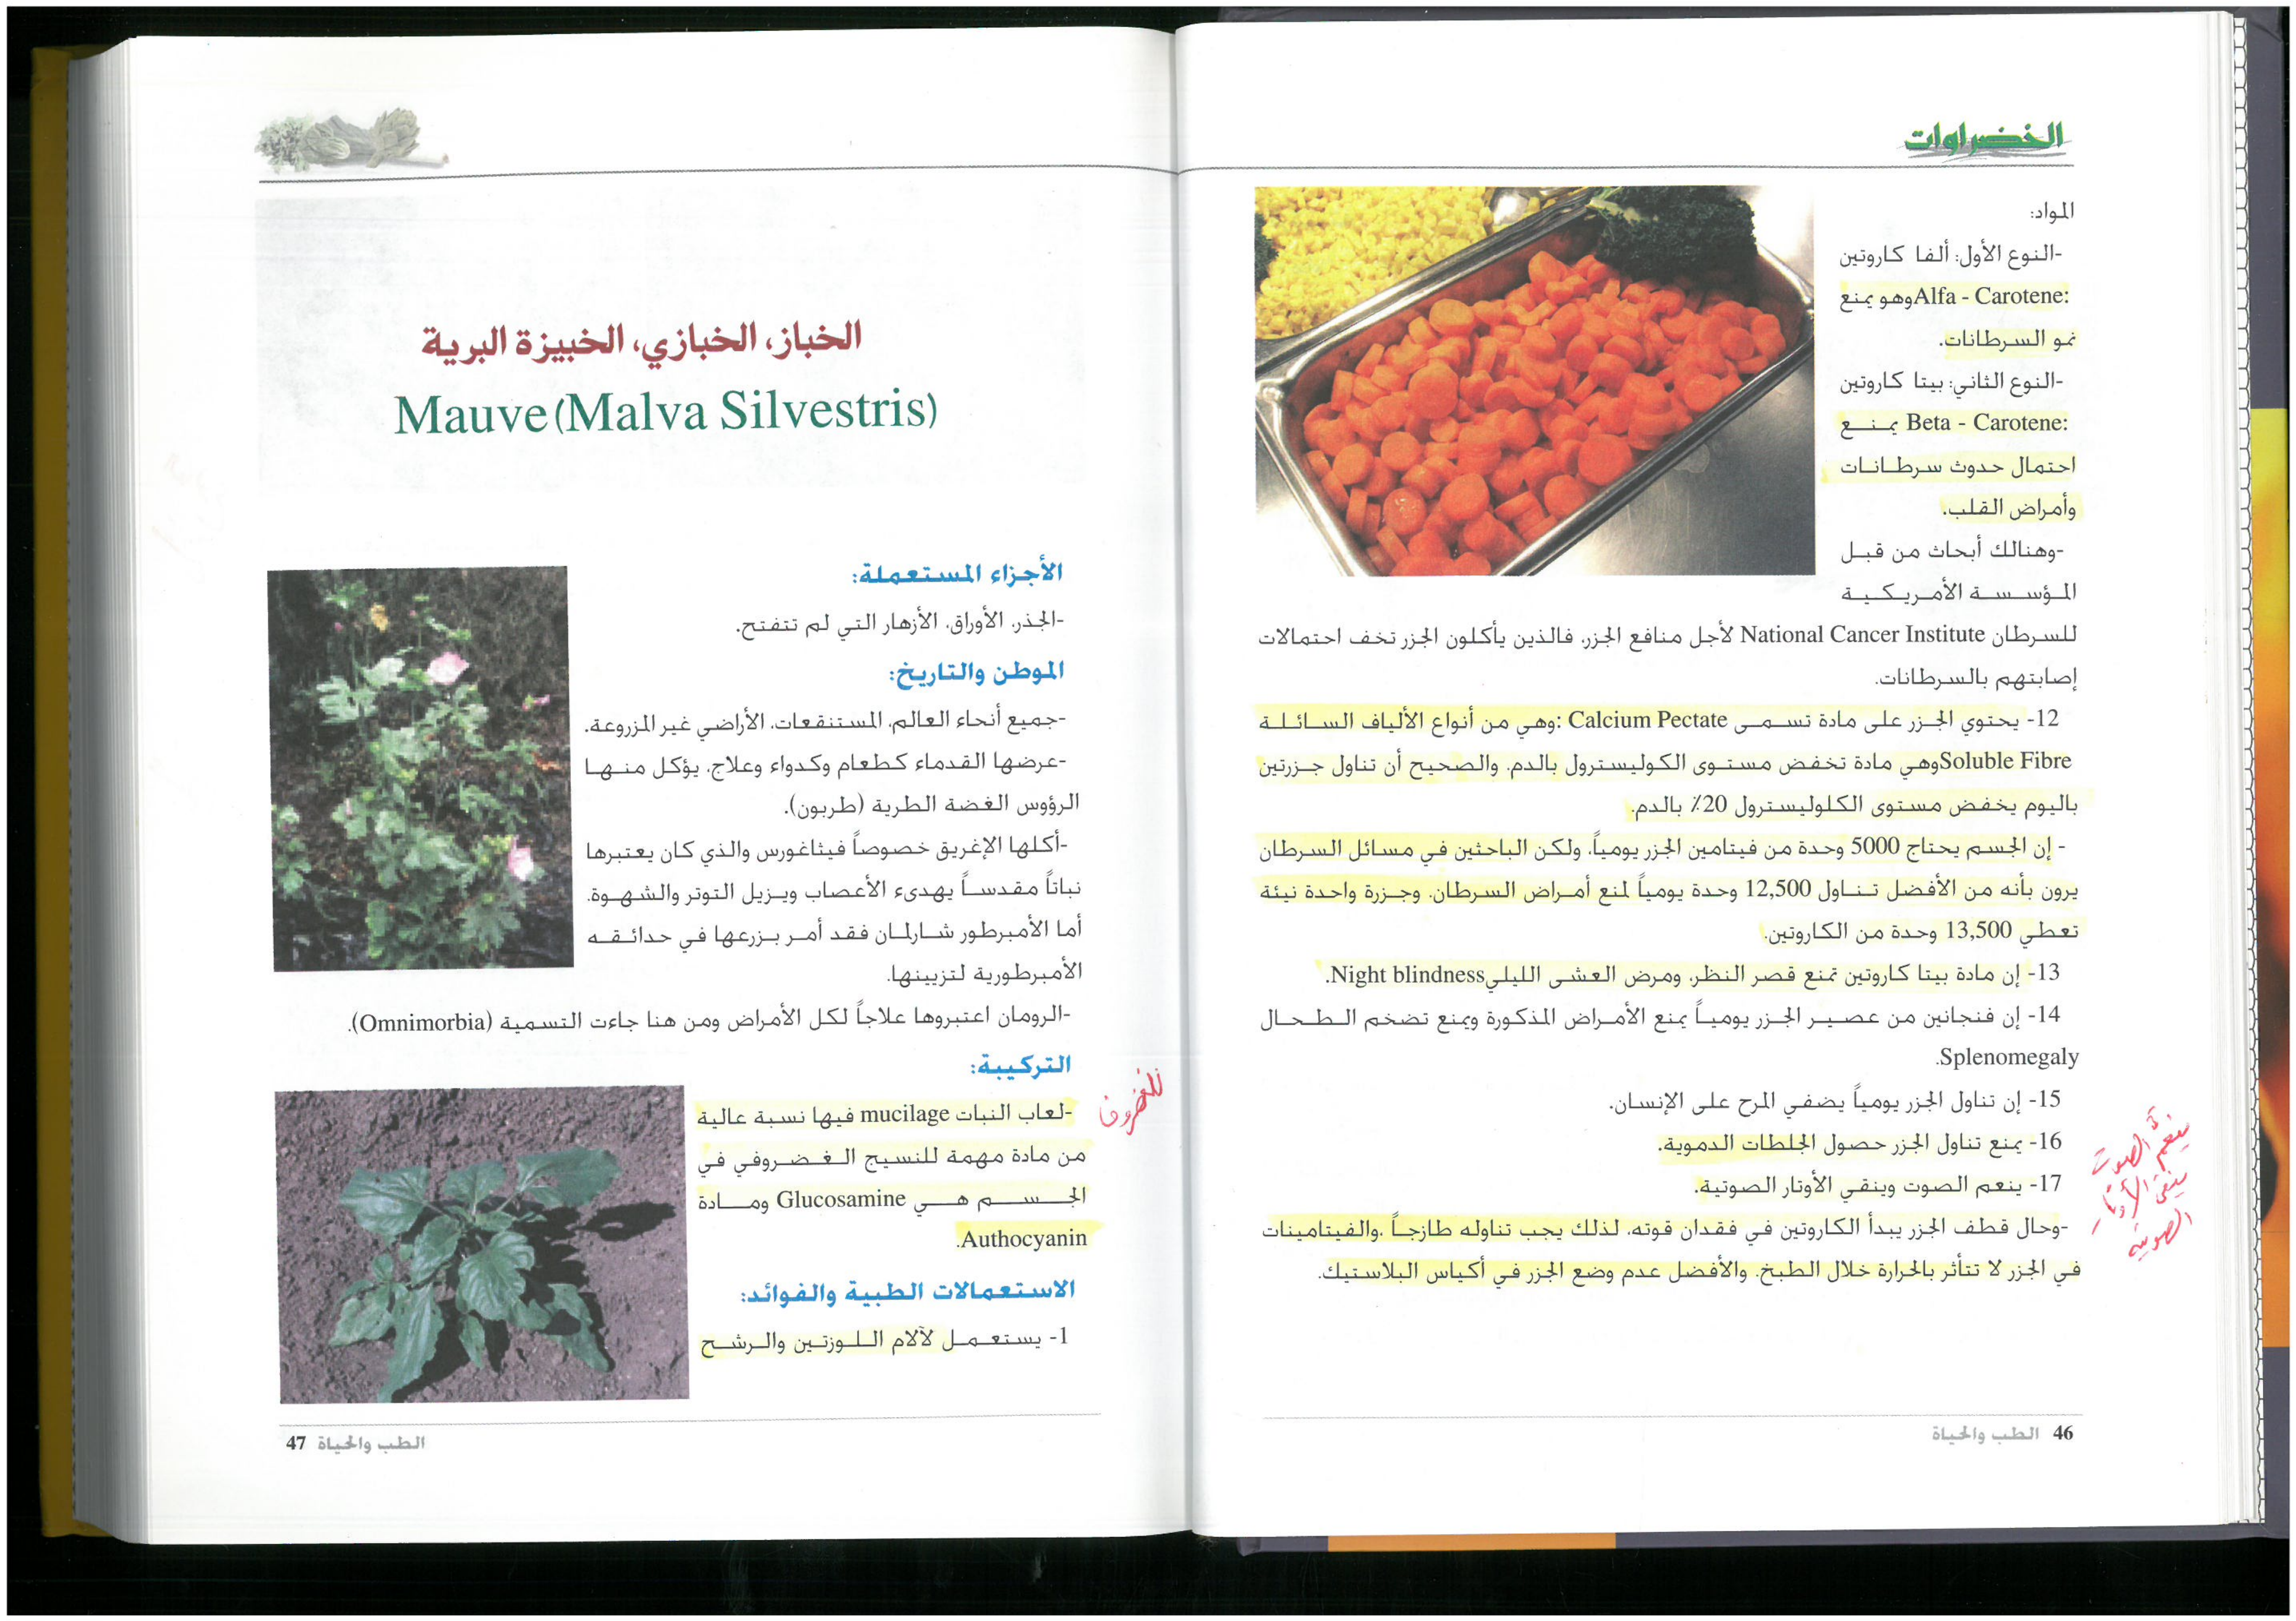 الخضراوات
المواد:
-النوع الأول: ألفا كاروتين
Alfa - Carotene: وهو يمنع
نمو السرطانات.
-النوع الثاني: بيتا كاروتين
Beta - Carotene: يمنع
احتمال حدوث سرطانات
وأمراض القلب.
-وهنالك أبحاث من قبل
المؤسسة الأمريكية
للسرطان National Cancer Institute لأجل منافع الجزر، فالذين يأكلون الجزر تخف احتمالات
إصابتهم بالسرطانات.
12- يحتوي الجزر على مادة تسمى Calcium Pectate :وهي من أنواع الألياف السائلة
Soluble Fibreوهي مادة تخفض مستوى الكوليسترول بالدم. والصحيح أن تناول جزرتين
باليوم يخفض مستوى الكلوليسترول 20٪ بالدم.
- إن الجسم يحتاج 5000 وحدة من فيتامين الجزر يومياً، ولكن الباحثين في مسائل السرطان
يرون بأنه من الأفضل تناول 12,500 وحدة يومياً لمنع أمراض السرطان. وجزرة واحدة نيئة
تعطي 13,500 وحدة من الكاروتين.
13- إن مادة بيتا كاروتين تمنع قصر النظر، ومرض العشى الليليNight blindness.
14- إن فنجانين من عصير الجزر يومياً يمنع الأمراض المذكورة ويمنع تضخم الطحال
Splenomegaly.
15- إن تناول الجزر يومياً يضفي المرح على الإنسان.
16- يمنع تناول الجزر حصول الجلطات الدموية.
17- ينعم الصوت وينقي الأوتار الصوتية.
-وحال قطف الجزر يبدأ الكاروتين في فقدان قوته، لذلك يجب تناوله طازجاً .والفيتامينات
في الجزر لا تتأثر بالحرارة خلال الطبخ. والأفضل عدم وضع الجزر في أكياس البلاستيك.
ينعم الصوت
ينقي الأوتار
الصوتية
46 الطب والحياة
الخباز، الخبازي، الخبيزة البرية
Mauve (Malva Silvestris)
الأجزاء المستعملة:
-الجذر، الأوراق، الأزهار التي لم تتفتح.
الموطن والتاريخ:
-جميع أنحاء العالم، المستنقعات، الأراضي غير المزروعة.
-عرضها القدماء كطعام وكدواء وعلاج، يؤكل منها
الرؤوس الغضة الطرية (طربون).
-أكلها الإغريق خصوصاً فيثاغورس والذي كان يعتبرها
نباتاً مقدساً يهدىء الأعصاب ويزيل التوتر والشهوة.
أما الأمبرطور شارلمان فقد أمر بزرعها في حدائقه
الأمبرطورية لتزيينها.
-الرومان اعتبروها علاجاً لكل الأمراض ومن هنا جاءت التسمية (Omnimorbia).
التركيبة:
-لعاب النبات mucilage فيها نسبة عالية
من مادة مهمة للنسيج الغضروفي في
الجسم هي Glucosamine ومادة
Authocyanin.
للغضروف
الاستعمالات الطبية والفوائد:
1- يستعمل لآلام اللوزتين والرشح
الطب والحياة 47